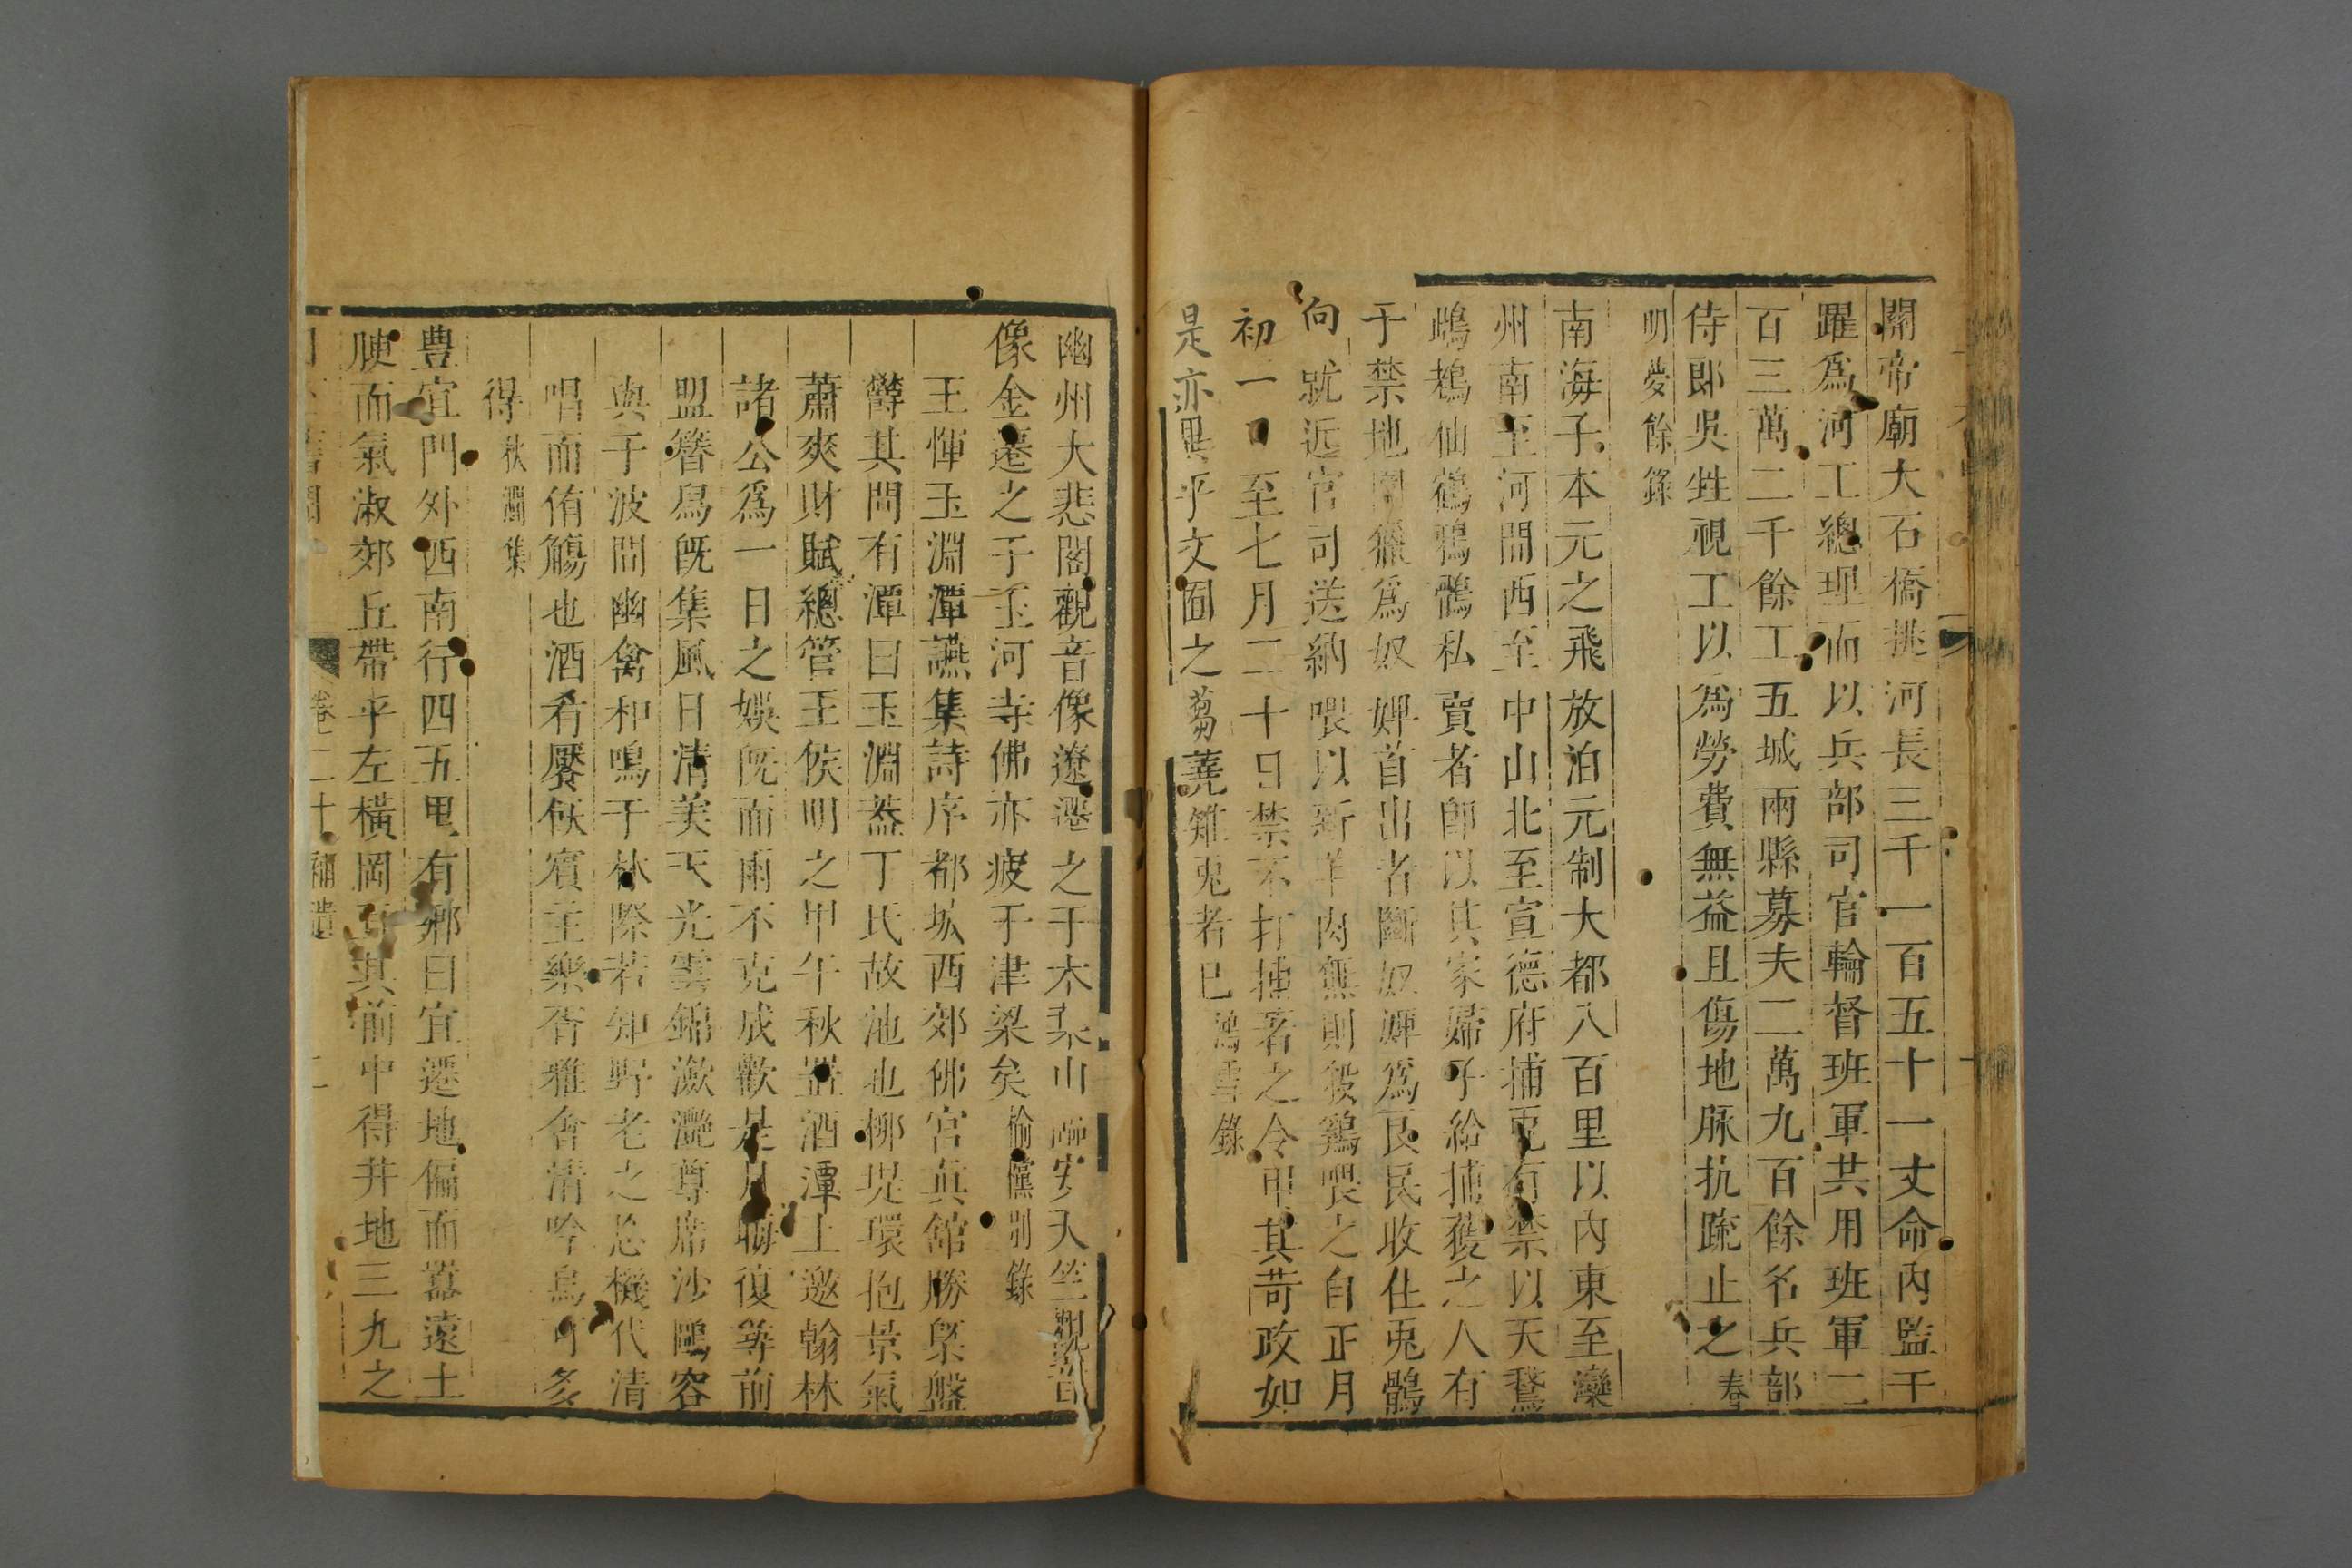 關帝廟大石橋挑河長三千一百五十一丈命內監王
躍爲河工總理而以兵部司官輪督班軍共用班軍二
百三萬二千餘工五城兩縣募夫二萬九百餘名兵部
侍郎吳甡視工以爲勞費無益且傷地脈抗疏止之春
明夢餘錄
南海子本元之飛放泊元制大都八百里以內東至灤
州南至河間西至中山北至宣德府捕兎有禁以天鵞
鵝仙鶴鴉鶻私賣者卽以其家婦子給捕獲之人有
于禁地圍獵爲奴婢首出者斷奴婢爲良民收住兎鶻
向就近官司送納喂以新羊肉無則殺鷄喂之自正月
初一日至七月二十日禁不打捕著之令甲其苛政如
是亦異乎文囿之芻蕘雉兎者已鴻雪錄
幽州大悲閣觀音像遼遷之于木葉山臨安天竺觀音
像金遷之于玉河寺佛亦疲于津梁矣偷儻別錄
王惲玉淵潭讌集詩序都城西郊佛宮眞舘勝槩盤
鬱其間有潭曰玉淵葢丁氏故池也栁堤環抱景氣
蕭爽財賦總管王侯明之甲午秋置酒潭上邀翰林
諸公爲一日之娛旣而雨不克成歡是月晦復尋前
盟簪舃旣集風日清美天光雲錦瀲灧尊席沙鷗容
與于波間幽禽和鳴于林際若知野老之忘機代清
唱而侑觴也酒肴饜飫賓主樂胥雅會清吟烏可多
得秋澗集
豊宜門外西南行四五里有鄉曰宜遷地偏而嚣遠土
腴而氣淑郊丘帶乎左橫岡其前中得井地三九之
卷二十補遺